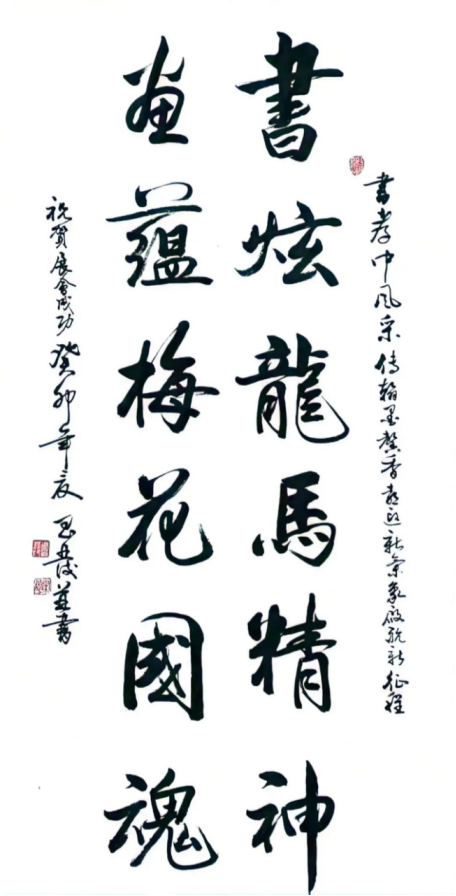 書孝中風采傳翰墨馨香喜迎新氣象啟航新征程
書炫龍馬精神
畫蘊梅花國魂
祝賀展會成功癸卯年夏並書